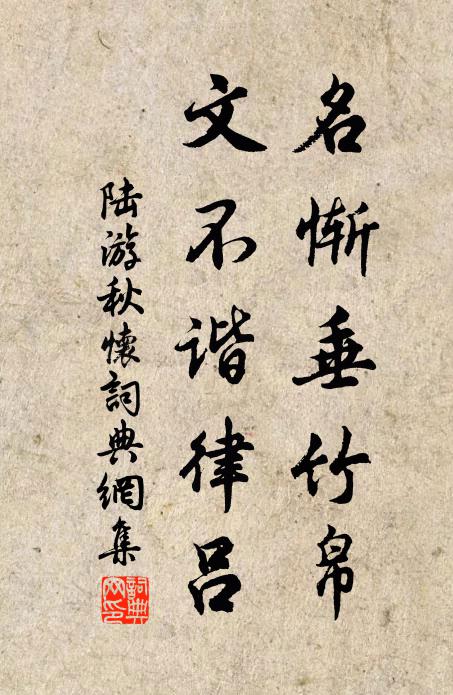 名惭垂竹帛
文不谐律吕
陆游秋懷詞典網集
詞典网印